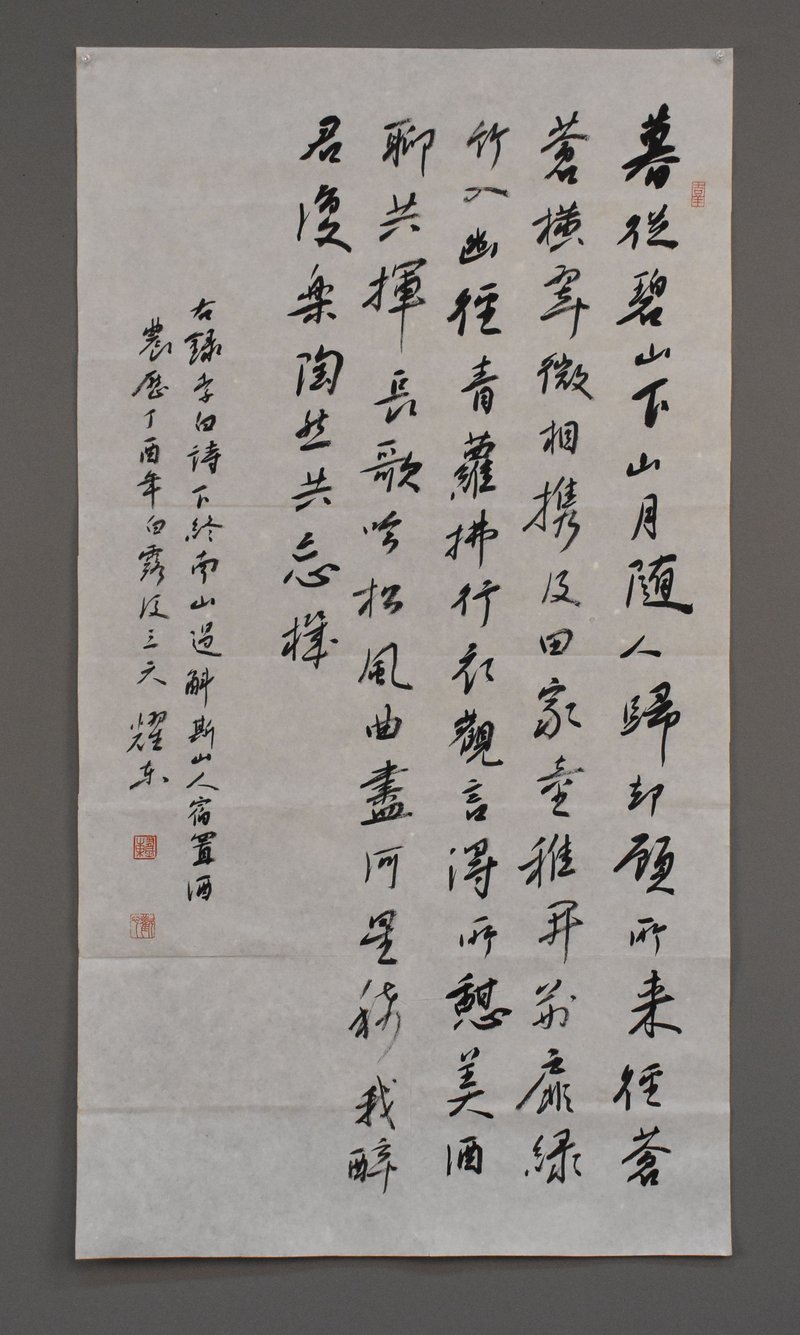 暮從碧山下山月随人歸却顾所来徑蒼
蒼横翠微相携及田家童稚开荆扉绿
竹入幽徑青蘿拂行衣觀言得所憩美酒
聊共揮長歌吟松風曲盡河星稀我醉
君復樂陶然共忘機
右録李白詩下終南山過斛斯山人宿置酒
農歷丁酉年白露后三天 耀东